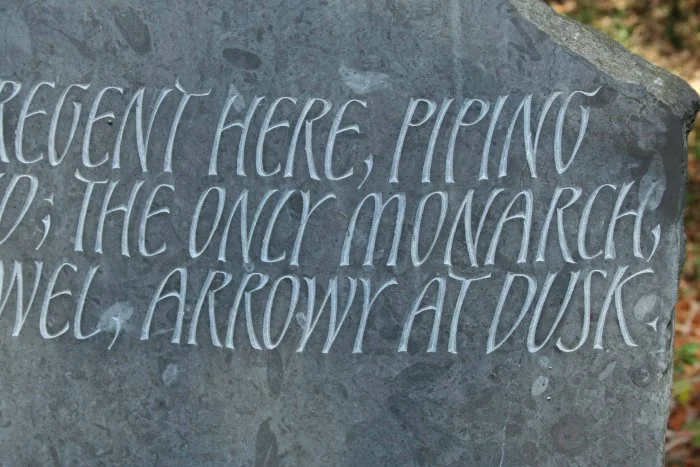 REGENT HERE, PIPING
D; THE ONLY MONARCH,
WEL, ARROWY AT DUSK.